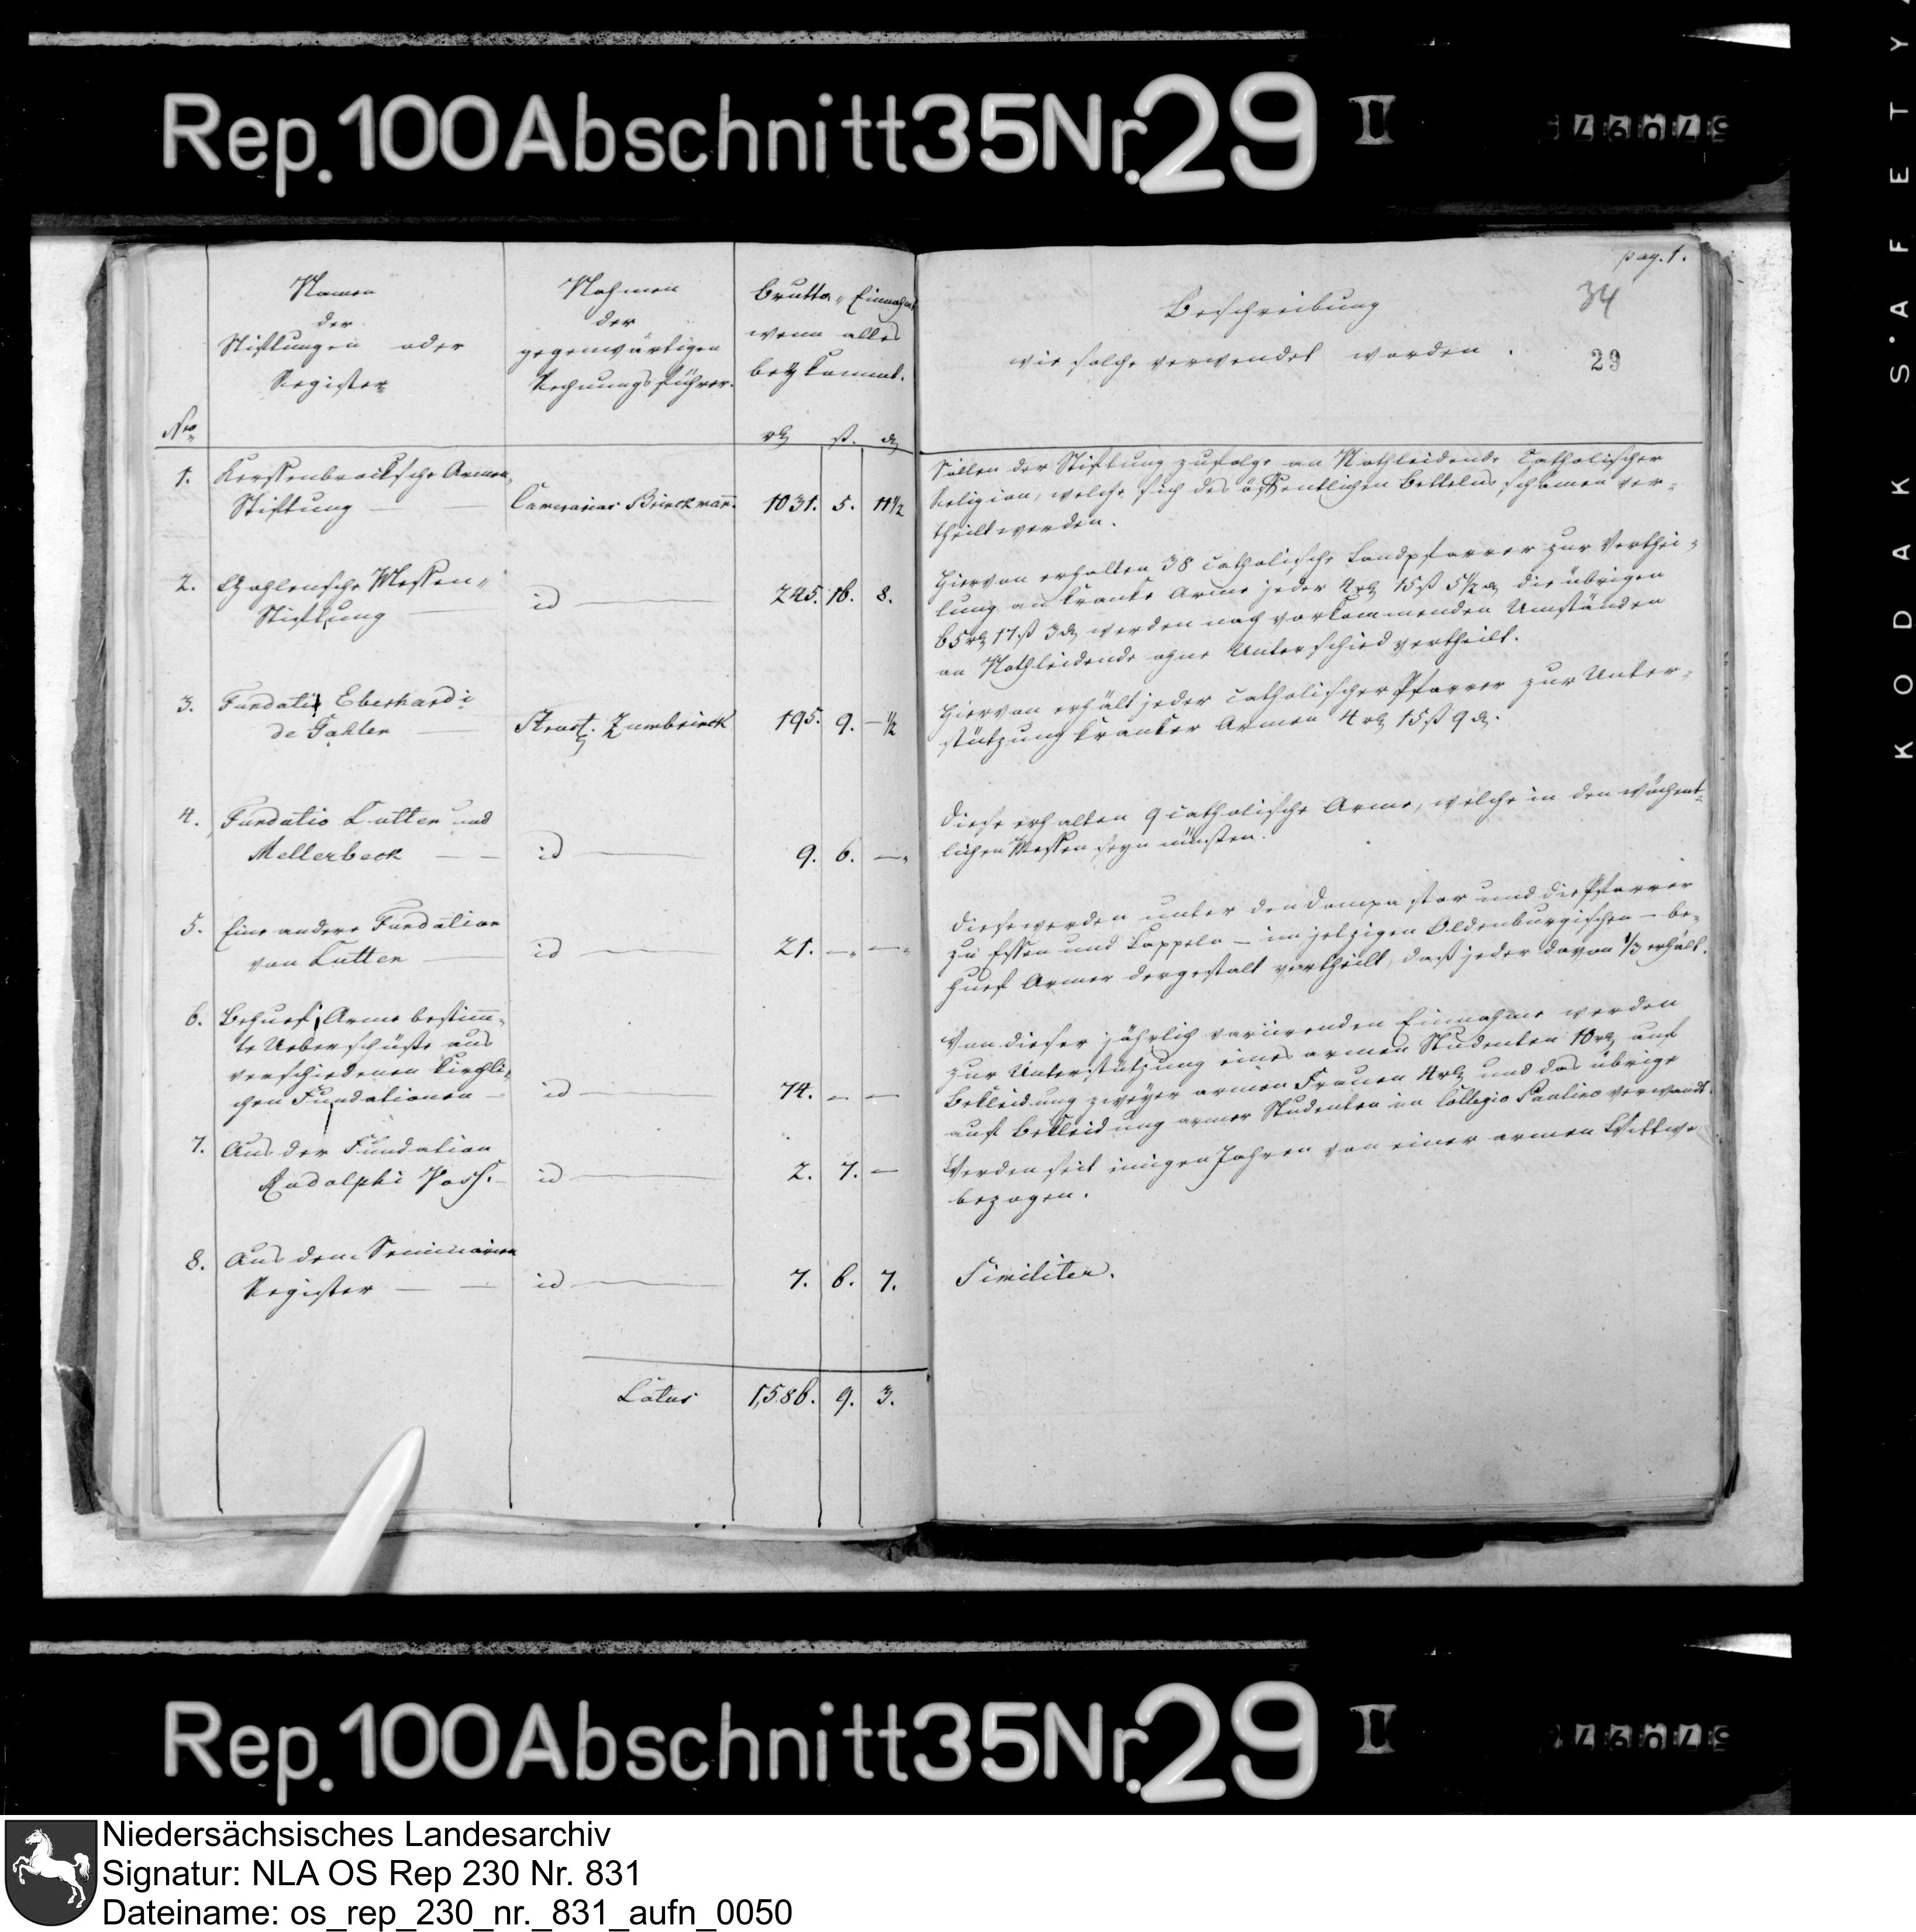 Rep. 100 Abschnitt 35 Nr. 29 II
pag. 1.
34
29
Nro
Namen
der
Stiftungen oder
Register
Nahmen
der
gegenwärtigen
Rechnungsführer.
Brutto„ Einnahme
wenn alles
beykommt.
rth ß. d
Beschreibung
wie solche verwendet werden.
1. Kerssenbrocksche Armen„
Stiftung — — Camerarius Brinckman̄. 1031. 5. 11½
Sollen der Stiftung zufolge an Nothleidende Catholischer
Religion, welche sich des öffentlichen Bettelns schämen ver„
theilt werden.
2. Messen„
Stiftung — id — 245. 16. 8.
Hiervon erhalten 38 catholische Landpfarrer zur Verthei„
lung an kranke Arme jeder 4 rth 15 ß 5½ d die übrigen
65 rth 17 ß 3 d werden nach vorkommenden Umständen
an Nothleidende ohne Unterschied vertheilt.
3. Fundatio Eberhardi
de — Struct. Zumbrinck 195. 9. — ½
Hiervon erhält jeder catholischer Pfarrer zur Unter„
stützung kranker Armen 4 rth 15 ß 9 d.
4. Fundatio Lutten und
Mellerbeck — — id — 9. 6. —„
Diese erhalten 9 catholische Arme, welche in den wöchent„
lichen Messen seyn müssten.
5. Eine andere Fundation
von Lutten — id — 21. —„ —„
Diese werden unter den Dompastor und die Pfarrer
zu Essen und Lappeln — im jetzigen Oldenburgischen — be„
huef Armer dergestalt vertheilt, daß jeder davon ⅓ erhält.
6. Behuef Arme bestim̄„
te Ueberschüße aus
verschiedenen kirchli„
chen Fundationen — id — 74. —„ —
Von dieser jährlich variirenden Einnahme werden
zur Unterstützung eines armen Studenten 10 rth auf
Bekleidung zweyer armen Frauen 4 rth und das übrige
auf Bekleidung armer Studenten im Collegio Paulino verwandt.
7. Aus der Fundation
Rudolphi Voss. — id — 2. 7. —
Werden seit einigen Jahren von einer armen Wittwe
bezogen.
8. Aus dem Seminarien
Register — — id — 7. 6. 7.
Similiter.
Latus 1,586. 9. 3.
Rep. 100 Abschnitt 35 Nr. 29 II
KODAK S'AFETY
Niedersächsisches Landesarchiv
Signatur: NLA OS Rep 230 Nr. 831
Dateiname: os_rep_230_nr._831_aufn_0050